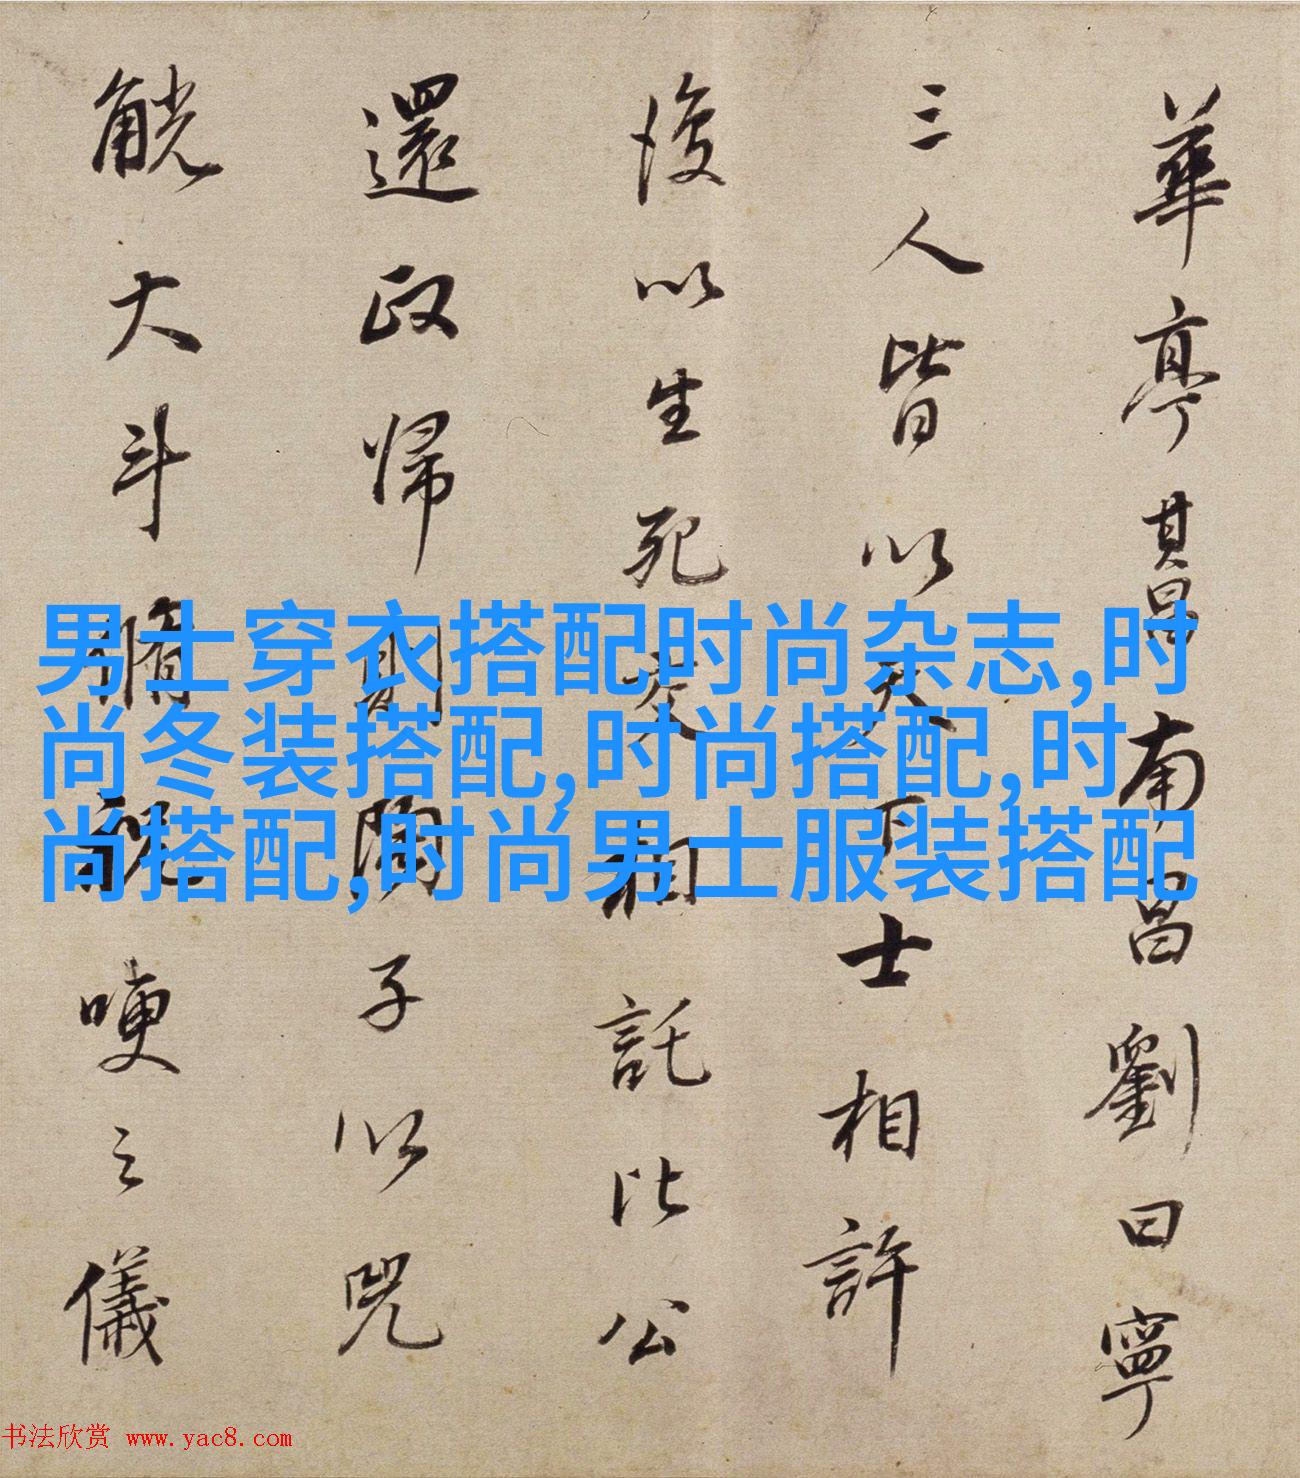 華亭其昌南昌劉曰寧
三人皆以天下士相許
後以生死交相託比公
還政歸期陶子以兕
觥大斗脩祝哽之儀
男士穿衣搭配时尚杂志,时
尚冬装搭配,时尚搭配,时
尚搭配,时尚男士服装搭配
书法欣赏 www.yac8.com